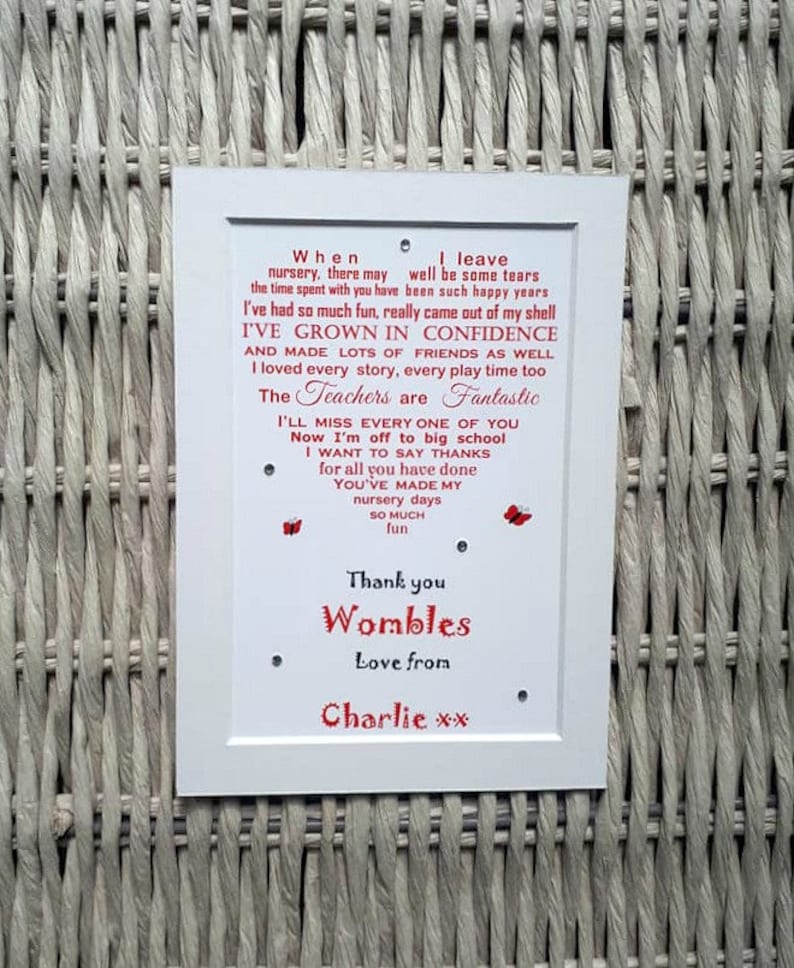 When I leave
nursery, there may well be some tears
the time spent with you have been such happy years
I've had so much fun, really came out of my shell
I'VE GROWN IN CONFIDENCE
AND MADE LOTS OF FRIENDS AS WELL
I loved every story, every play time too
The Teachers are Fantastic
I'LL MISS EVERY ONE OF YOU
Now I'm off to big school
I WANT TO SAY THANKS
for all you have done
YOU'VE MADE MY
nursery days
SO MUCH
fun
Thank you
Wombles
Love from
Charlie xx